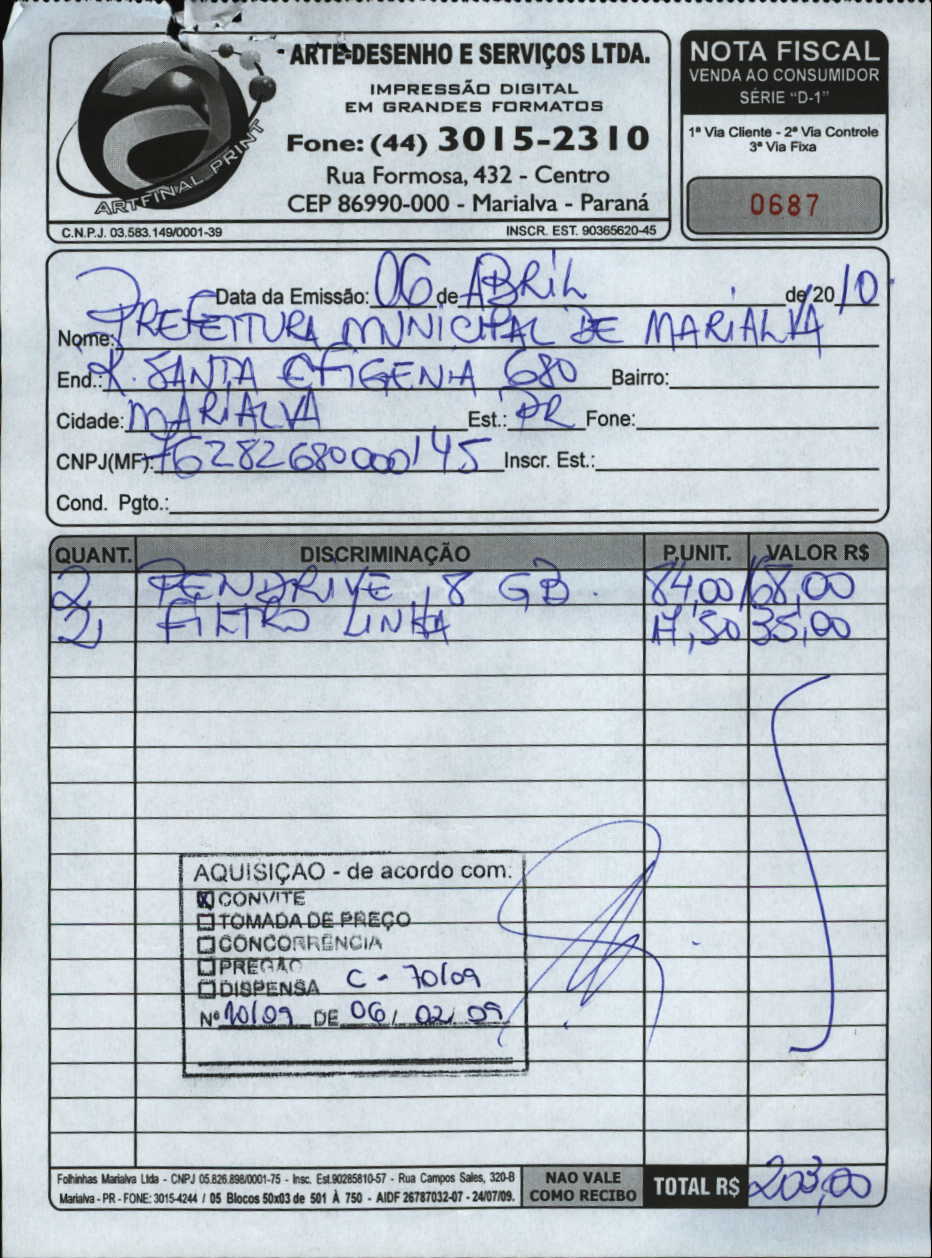 ARTE-DESENHO E SERVIÇOS LTDA.
IMPRESSÃO DIGITAL
EM GRANDES FORMATOS
Fone: (44) 3015-2310
Rua Formosa, 432 - Centro
CEP 86990-000 - Marialva - Paraná
ARTFINAL PRINT
C.N.P.J. 03.583.149/0001-39 INSCR. EST. 90365620-45
NOTA FISCAL
VENDA AO CONSUMIDOR
SÉRIE "D-1"
1ª Via Cliente - 2ª Via Controle
3ª Via Fixa
0687
Data da Emissão: 06 de ABRIL de 2010
Nome: PREFEITURA MUNICIPAL DE MARIALVA
End.: R. SANTA EFIGENIA 680 Bairro:
Cidade: MARIALVA Est.: PR Fone:
CNPJ(MF): 76282680000145 Inscr. Est.:
Cond. Pgto.:
QUANT. DISCRIMINAÇÃO P.UNIT. VALOR R$
2 PENDRIVE 8 GB 84,00 168,00
2 FILTRO LINHA 17,50 35,00
AQUISIÇÃO - de acordo com:
CONVITE
TOMADA DE PREÇO
CONCORRÊNCIA
PREGÃO
DISPENSA C - 70/09
Nº 10/09 DE 06/ 02/ 09
Folhinhas Marialva Ltda - CNPJ 05.826.898/0001-75 - Insc. Est.90285810-57 - Rua Campos Sales, 320-B
Marialva - PR - FONE: 3015-4244 / 05 Blocos 50x03 de 501 À 750 - AIDF 26787032-07 - 24/07/09.
NAO VALE
COMO RECIBO
TOTAL R$ 203,00